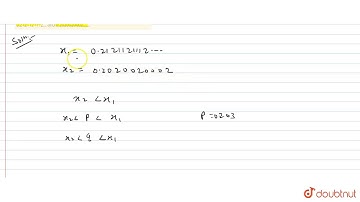 Solⁿ:-
x₁ = 0.212112111 2 ---
x₂ = 0.2020020002
x₂ < x₁
x₂ < P < x₁
P = 0.203
x₂ < q < x₁
doubtnut